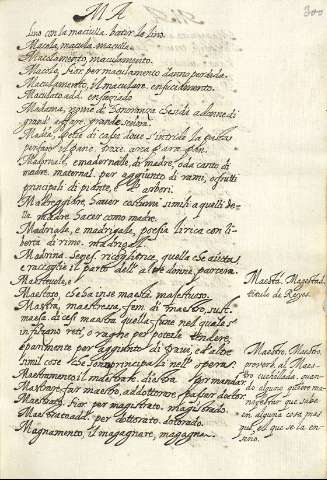 MA
300
lino con la maciulla. batir lo lino.
Macola, macula. macula.
Macolamento, maculamento.
Macola, fior. per maculamento danno. perdida.
Maculamento, il maculare. ensuciamento.
Maculato add. ensuciado.
Madama, nome di honoranza che si dà a donne di
grand' affare. grande señora.
Madia, spetie di cassa dove s'intride la pasta
per fare il pane. arca
Madornale, e madernalle, di madre, o da canto di
madre. maternal. per aggiunto di rami, o frutti
principali di piante, e d'arbori.
Madreggiare haver costumi simili a quelli de
la madre. hacer como madre.
Madrigale, e mandrigale, poesia lirica con li
bertà di rime. madrigal.
Madrina. coglitrice, quella che aiuta
e raccoglie il parto dell' altre donne. partera.
Maestevole, e
Maestoso, che ha in se maestà. majestuoso.
Maestra, maestressa, fem. di maestro, sust.
maesa. dicesi maestra quella fune nel quale s'
infilzano reti, o ragne per poterle tendere,
e parimente per aggiunto di travi, ed altre
simil cose che sono principali nell' opera.
Maestramento il maestrare. diestra. per mandar
Maestrare far maestro, addottorare. passar doctor.
Maestrato fior. per magistrato. magistrado.
Maestrato add. per dottorato. dotorado.
Magnamento, il magagnare, magagna.
Maestà. Magestad.
titulo de Reyes.
Maestro. Maestro.
proverb. al Maes-
tro cuchillada. quan-
do alguno quiere ma-
nifestar que sabe
en alguna cosa mas
que, el que se la en-
seño.